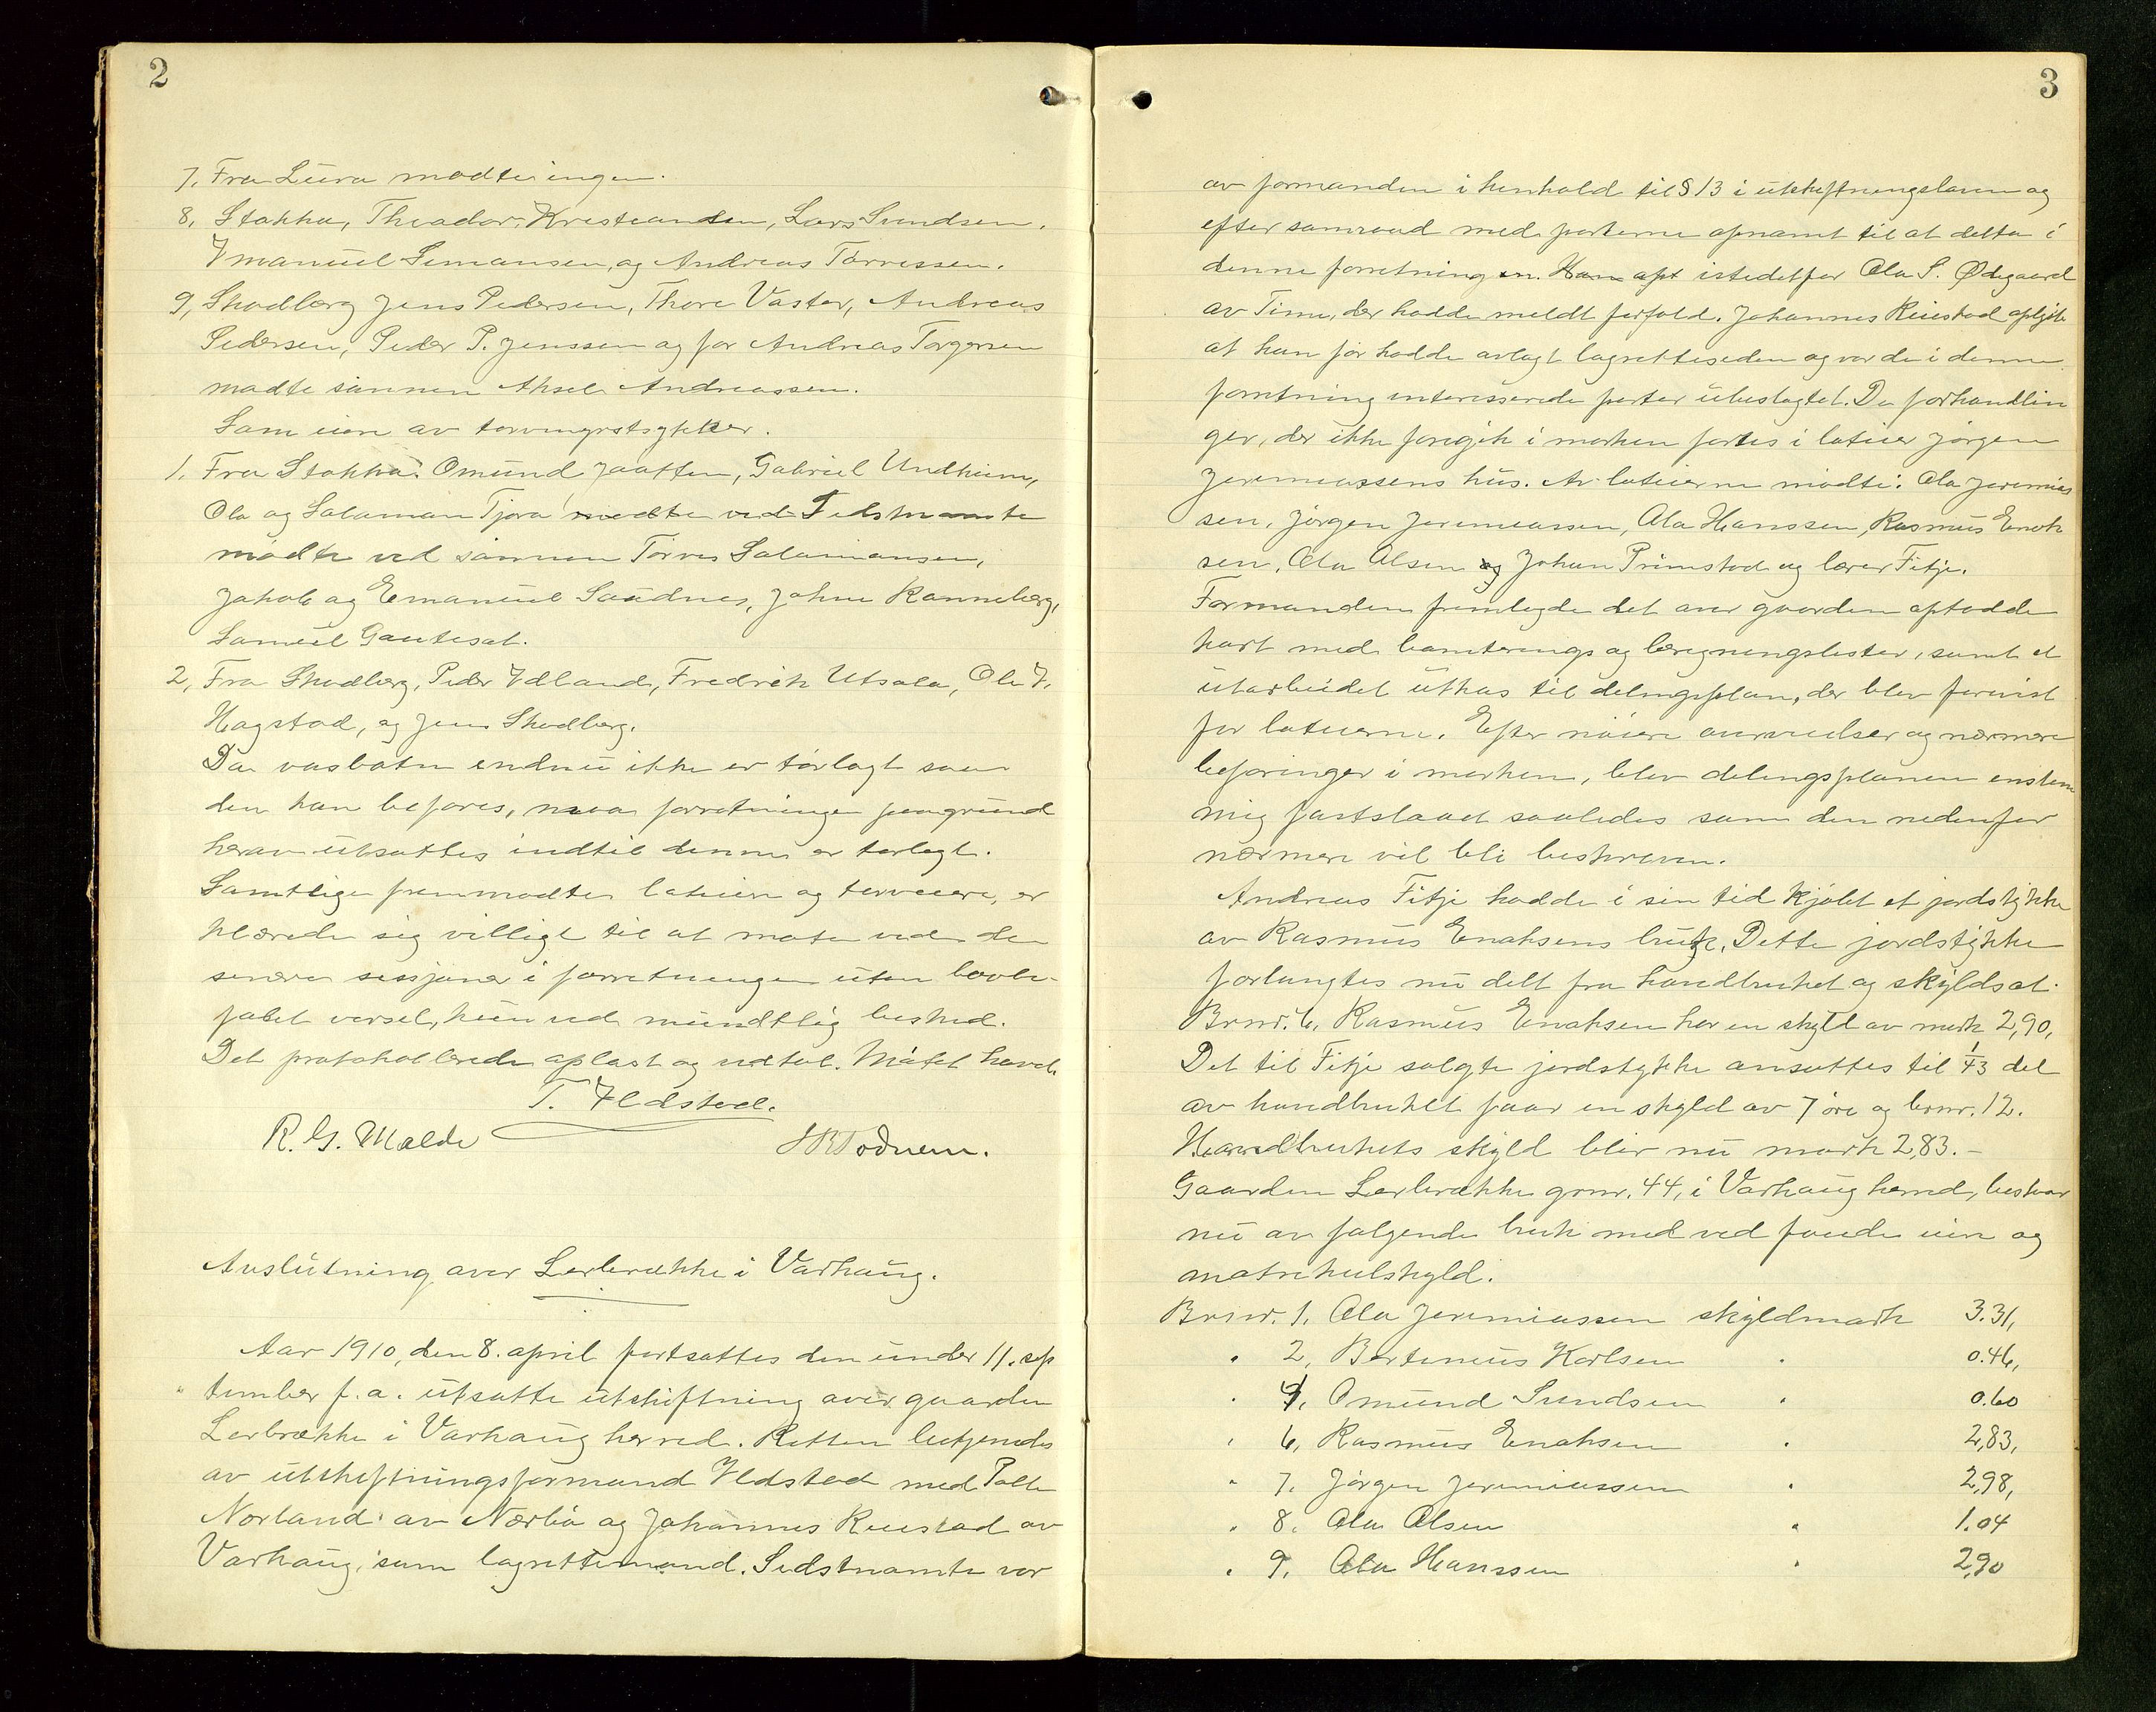 2
7, Fra Lura mødte ingen.
8, Stokka, Theodor Kristiansen, Lars Sundsen,
Imanuel Simonsen, og Andreas Tørressen.
9, Skadberg Jens Pedersen, Thore Vaster, Andreas
Pedersen, Peder P. Jenssen og for Andreas Torgersen
mødte sønnen Aksel Andreassen.
Som eier av torvmyrstykker.
1, Fra Stokka: Omund Jaatten, Gabriel Undheim,
Ola og Salamon Tjora mødte ved Sidstnævnte
mødte ved sønnen Tørres Salamonsen,
Jakob og Emanuel Saudnes, Johne Ranneberg,
Samuel Gautesat.
2, Fra Skadberg, Peder Idland, Fredrik Utsola, Ole I.
Hagstad, og Jens Skadberg.
Da vasbotn endnu ikke er tørlagt saa
den kan befares, maa forretningen paagrund
herav utsættes indtil denne er tørlagt.
Samtlige fremmødte lotteiere og torveiere, er
klærede sig villige til at møte ved den
senere sessjoner i forretningen uten lovbe-
falet varsel, kun ved mundtlig besked.
Det protokollerede oplæst og vedtat. Møtet hævet.
T. Ildstad.
R. G. Malde
Todnem.
Avslutning over Lerbrække i Varhaug.
Aar 1910, den 8. april fortsattes den under 11. sep
tember f. a. utsatte utskiftning over gaarden
Lerbrække i Varhaug herred. Retten betjenedes
av utskiftningsformand Ildstad med Palle
Norland av Nærbø og Johannes Reiestad av
Varhaug, som lagrettemænd. Sidstnævnte var
3
av formanden i henhold til § 13 i utskiftningsloven og
efter samraad med parterne opnævnt til at delta i
denne forretning en. Han opt istedetfor Ola S. Ødegaard
av Time, der hadde meldt forfald. Johannes Reiestad oplyste
at han før hadde avlagt lagretteseden og var de i denne
forretning interesserede parter ubeslægtet. De forhandlin
ger, der ikke foregik i marken førtes i lotteier Jørgen
Jeremiassens hus. Av lotteierne mødte: Ola Jeremias
sen, Jørgen Jeremiassen, Ola Hanssen, Rasmus Enok
sen, Ola Olsen og Johan Primstad og lærer Fitje.
Formanden fremlagde det over gaarden optadde
kart med boniterings og beregningslister, samt et
utarbeidet utkas til delingsplan, der blev forevist
for lotteierne. Efter nøiere overveielser og nærmere
befaringer i marken, blev delingsplanen enstem
mig fastslaaet saaledes som den nedenfor
nærmere vil bli beskreven.
Andreas Fitje hadde i sin tid kjøbt et jordstykke
av Rasmus Enoksens bruk. Dette jordstykke
forlangtes nu delt fra hovedbruket og skyldsat.
Brnr. 6, Rasmus Enoksen har en skyld av mark 2,90,
Det til Fitje solgte jordstykke ansættes til 1/43 del
av hovedbruket faar en skyld av 7 øre og brnr. 12.
Hovedbrukets skyld blir nu mark 2,83.-
Gaarden Lerbrække gnr. 44, i Varhaug herred, bestaar
nu av følgende bruk med ved føiede eiere og
matrikulskyld.
Brnr. 1, Ola Jeremiassen skyldmark 3.31,
" 2, Bertinius Karlsen " 0.46,
" 4, Omund Sundsen " 0.60
" 6, Rasmus Enoksen " 2,83,
" 7, Jørgen Jeremiassen " 2,98,
" 8, Ola Olsen " 1.04
" 9, Ola Hanssen " 2,90